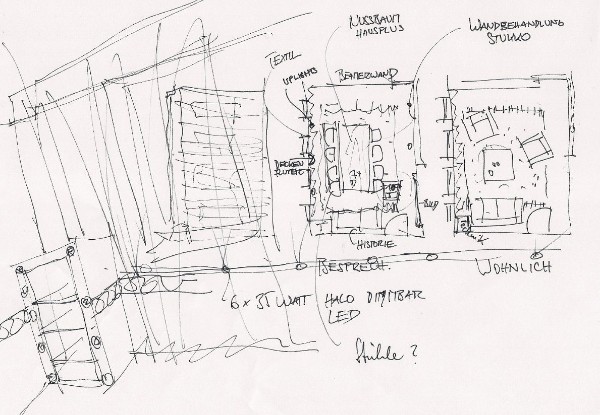 NUSSBAUM
HAUSPLUS
WANDBEHANDLUNG
STUKKO
TEXTIL
UPLIGHTS
BEAMERWAND
DECKEN
BILD
HISTORIE
BESPRECH.
WOHNLICH
6 x 35 WATT HALO DIMMBAR
LED
Stühle?